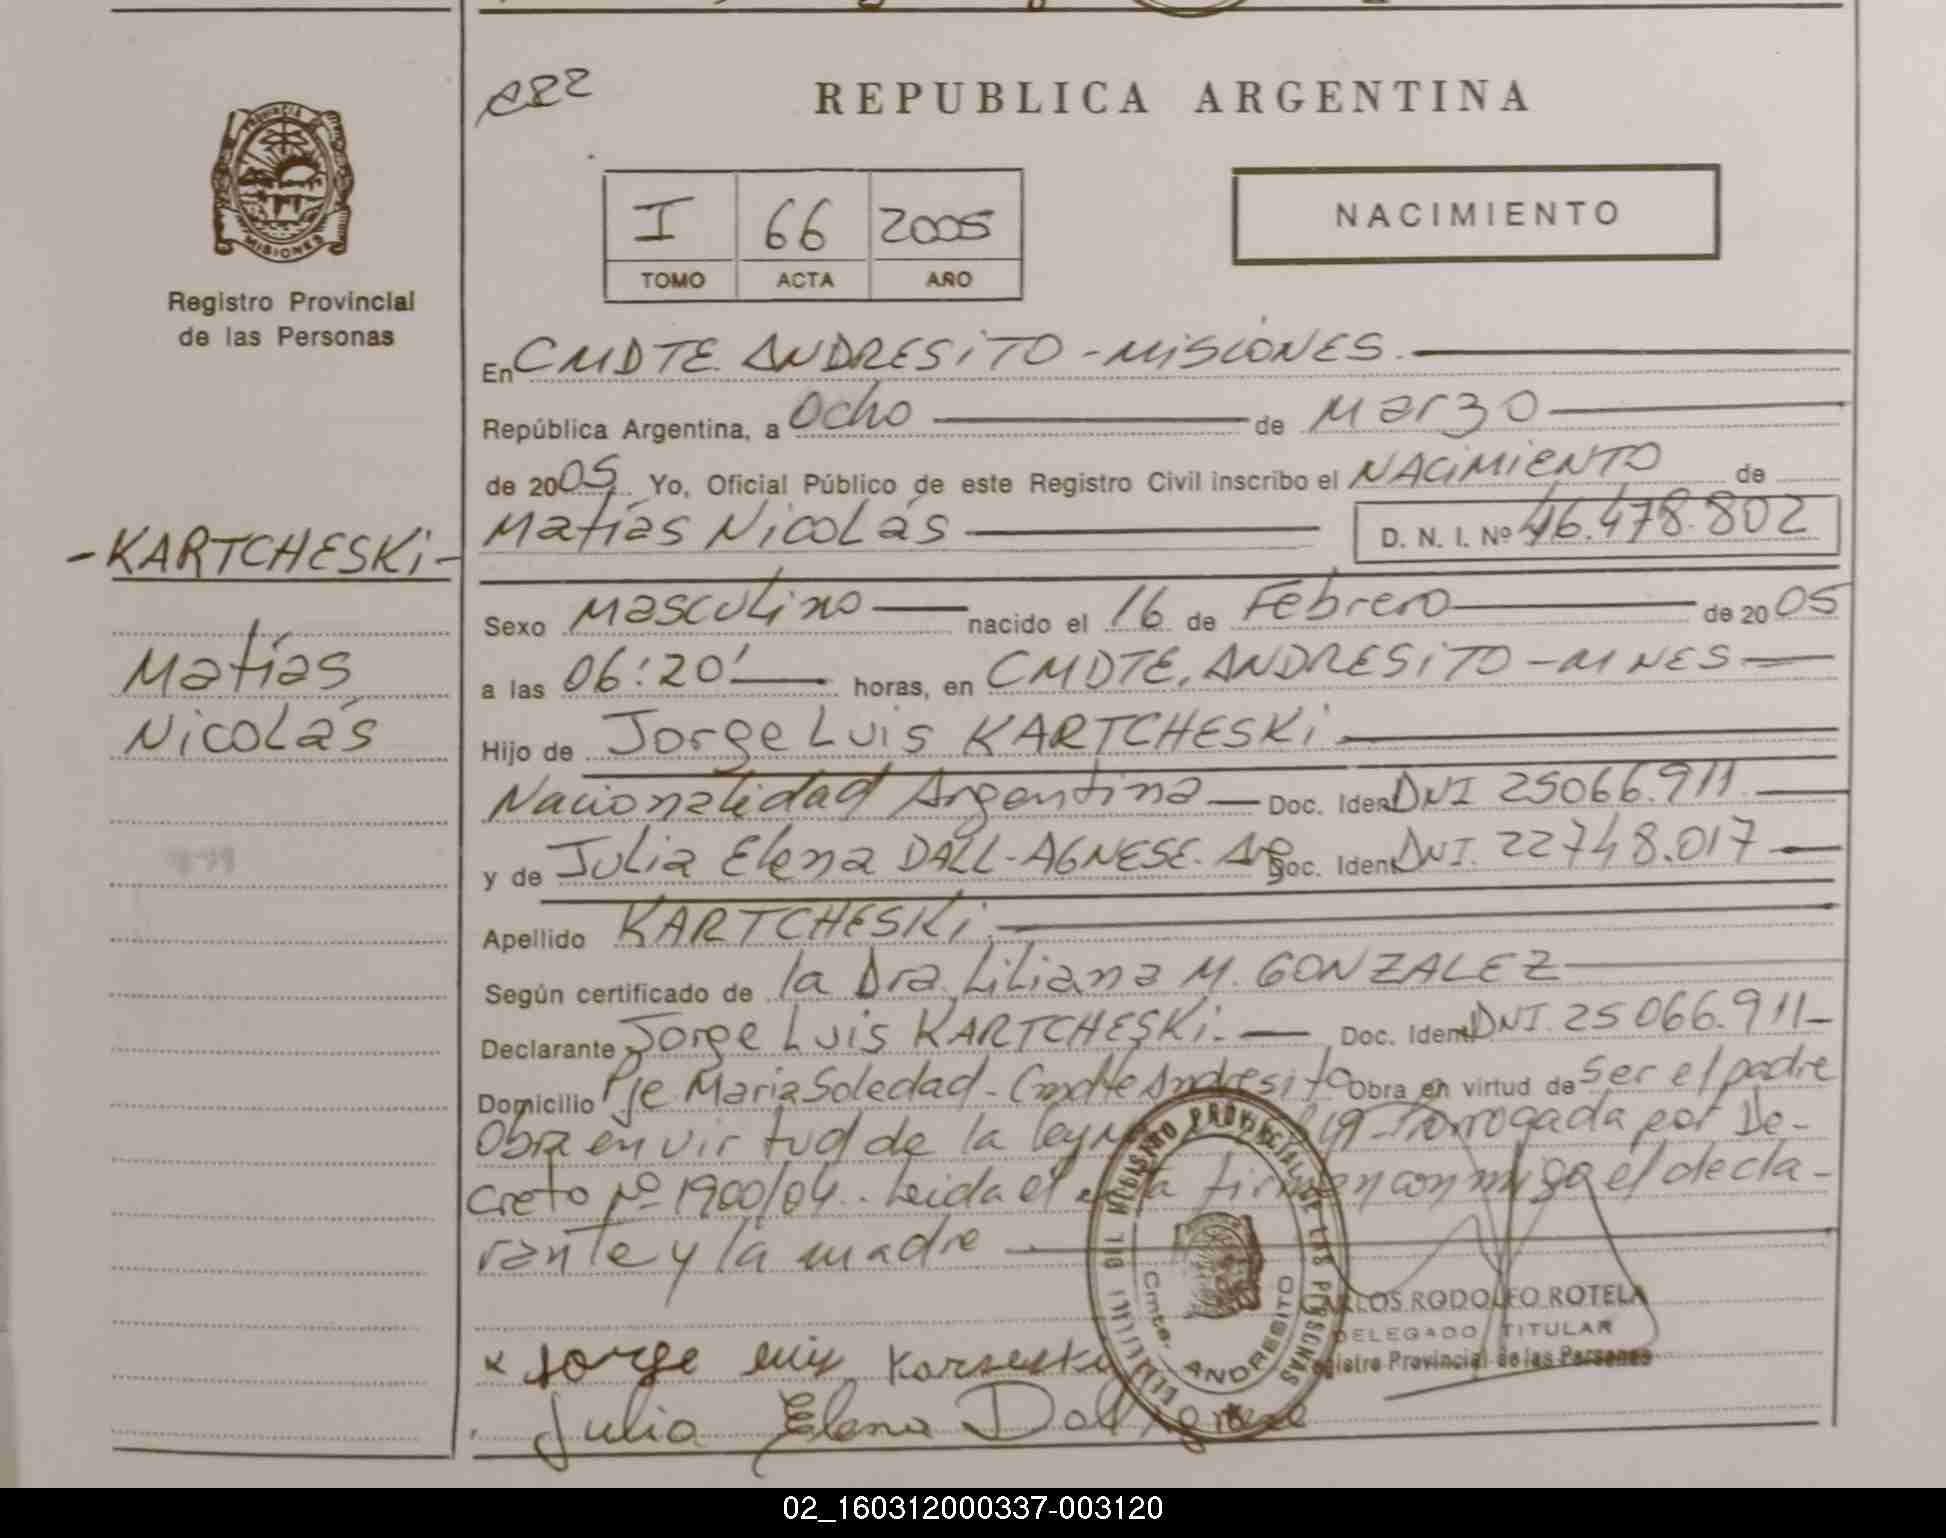 REPUBLICA ARGENTINA
PROVINCIA
MISIONES
Registro Provincial
de las Personas
I 66 2005
TOMO ACTA AÑO
NACIMIENTO
En CMDTE. ANDRESiTO - MiSiONES.
República Argentina, a Ocho de Marzo
de 2005 Yo, Oficial Público de este Registro Civil inscribo el NACiMiENTO de
Matías Nicolás D. N. I. Nº 46.478.802
- KARTCHESKi -
Matías
Nicolás
Sexo Masculino nacido el 16 de Febrero de 2005
a las 06:20' horas, en CMDTE. ANDRESiTO - MNES
Hijo de Jorge Luis KARTCHESKi
Nacionalidad Argentina Doc. Ident DNI 25066.911
y de Julia Elena DALL-AGNESE. Arg Doc. Ident DNI. 22748.017
Apellido KARTCHESKi
Según certificado de la Dra. Liliana M. GONZALEZ
Declarante Jorge Luis KARTCHESKi. Doc. Ident DNI. 25066.911
Domicilio Pje Maria Soledad - Cmdte Andresito Obra en virtud de Ser el padre
Obra en virtud de la ley Prorrogada por De-
creto Nº 1900/04. Leida el acta firman conmigo el decla-
rante y la madre
CARLOS RODOLFO ROTELA
DELEGADO TITULAR
Registro Provincial de las Personas
REGISTRO PROVINCIAL DE LAS PERSONAS
Cmte. ANDRESITO
x Jorge luis
Julia Elena Dall Agnese
02_160312000337-003120